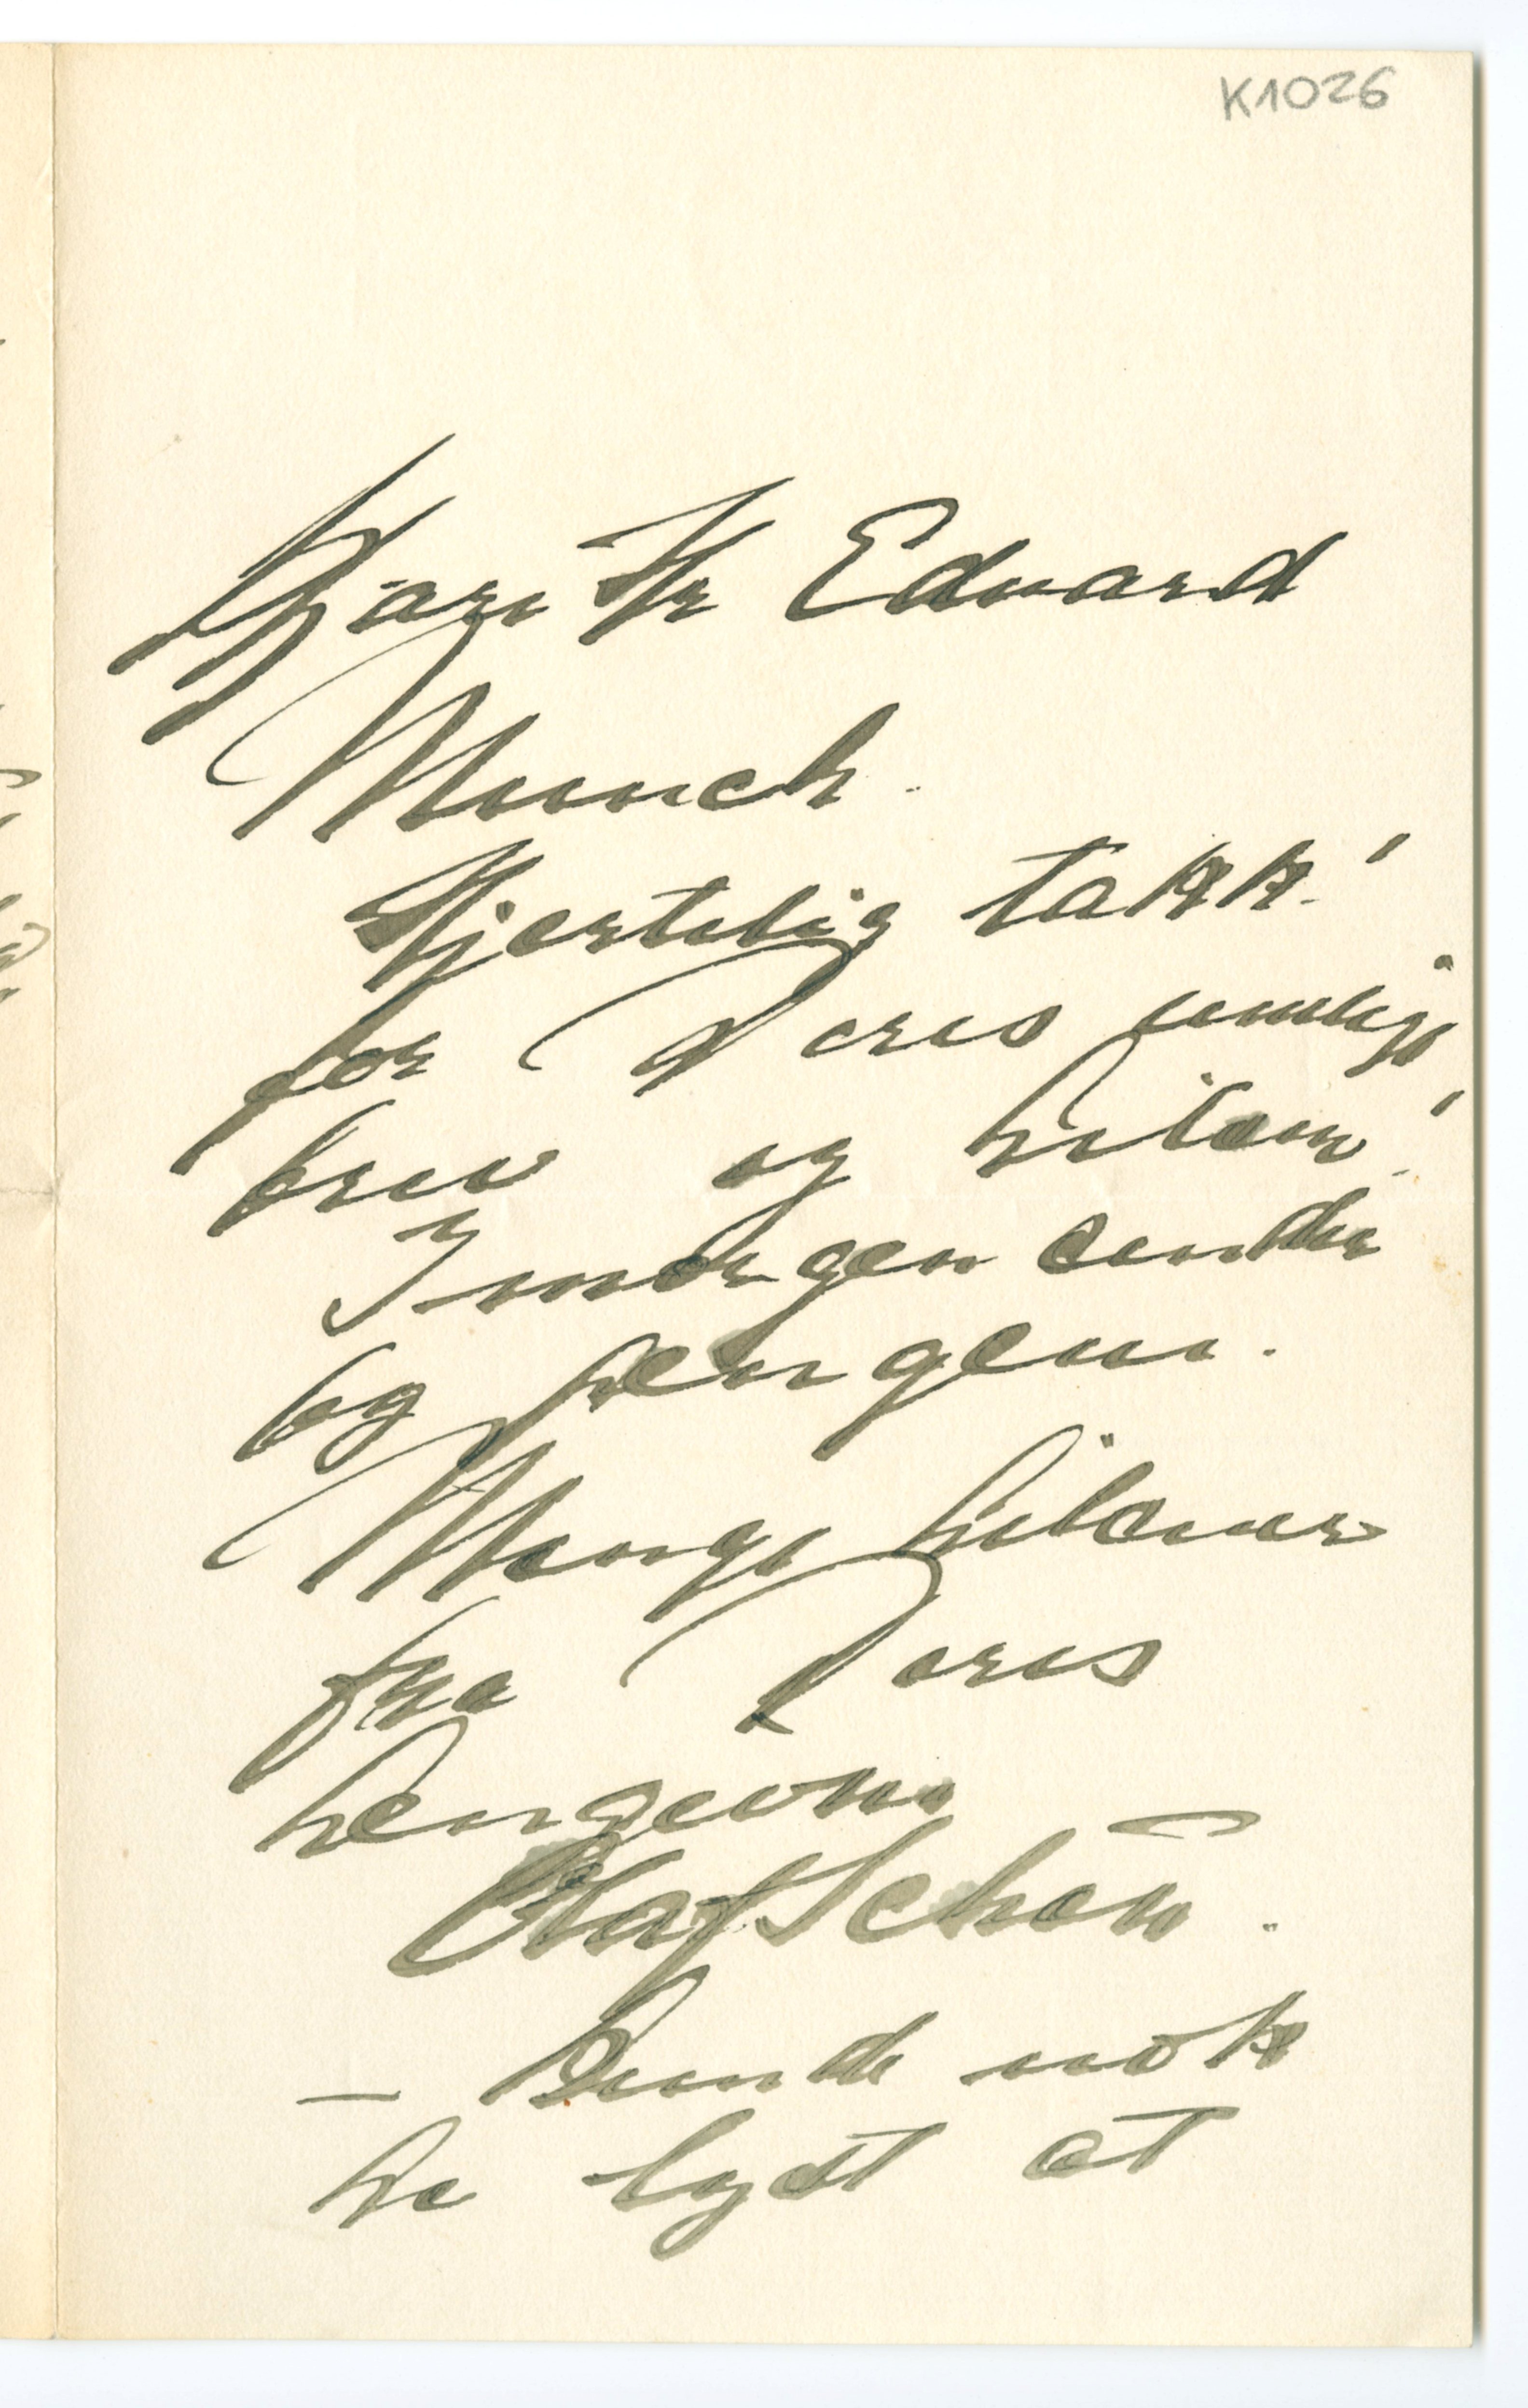 K1026
Kjære Hr Edvard
Munch.
Hjertelig takk!
for Deres
brev og hilsen!
Imorgen sender
eg pengene.
Mange hilsener
fra Deres
hengivne
Olaf Schou.
– Kunde nok
ha lyst at